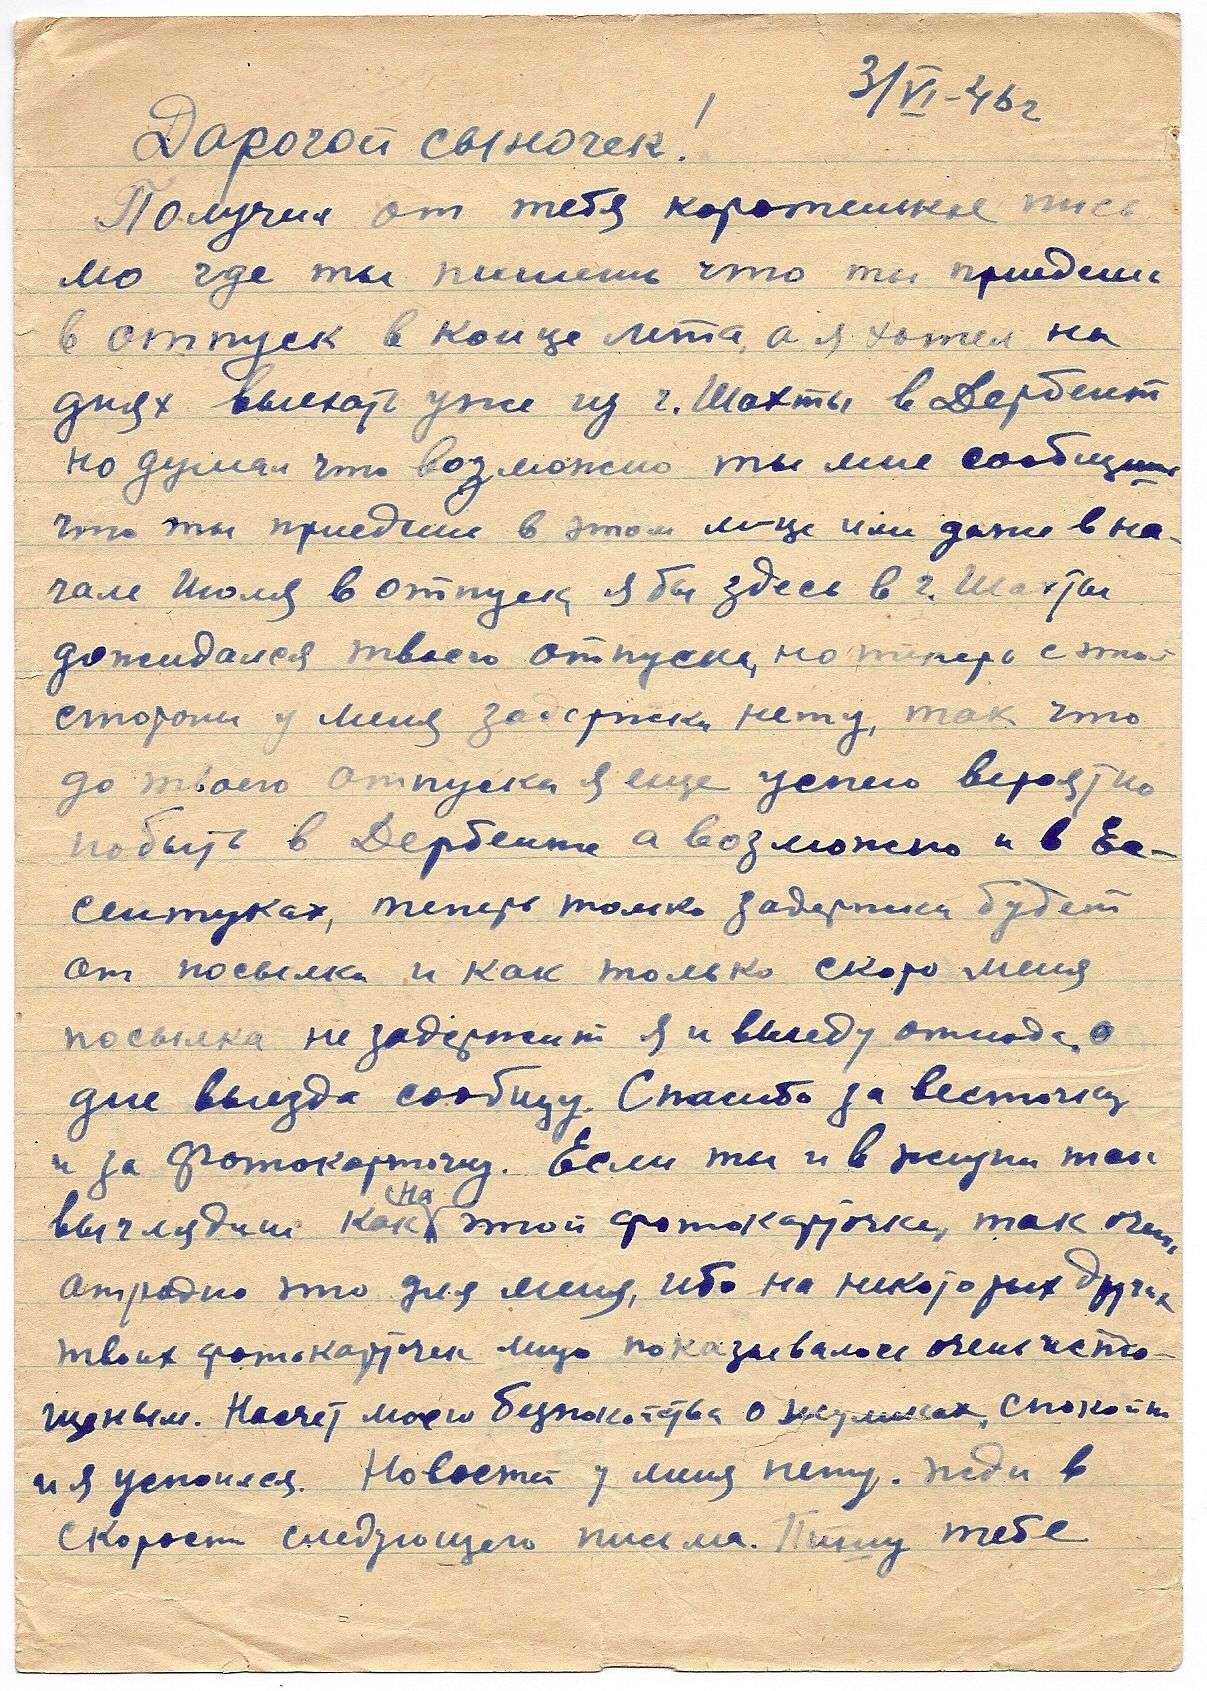 3/VI-46г
Дарогой сыночек!
Получил от тебя коротенькое пись
мо где ты пишешь что ты приедеш
в отпуск в конце лета, а я хотел на
днях выехать уже из г. Шахты в Дербент
но думал что возможно ты мне сообщиш
что ты приедеш в этом м-це или даже в на-
чале Июля в отпуск, я бы здесь в г. Шахты
дожидался твоего отпуска, но теперь с этой
стороны у меня задержки нету, так что
до твоего отпуска я еще успею вероятно
побыть в Дербенте а возможно и в Ес-
сентуках, теперь только задержка будет
от посылки и как только скоро меня
посылка не задержит я и выеду отсюда, о
дне выезда сообщу. Спасибо за весточку
и за фотокарточку. Если ты и в жизни так
выглядиш как на этой фотокарточке, так очень
отрадно это для меня, ибо на некоторых других
твоих фотокарточек лицо показывалось очень исто-
щеным. Насчет моего безпокойства о жуликах,
и я успоился. Новостей у меня нету. жди в
скорости следующего письма. Пишу тебе